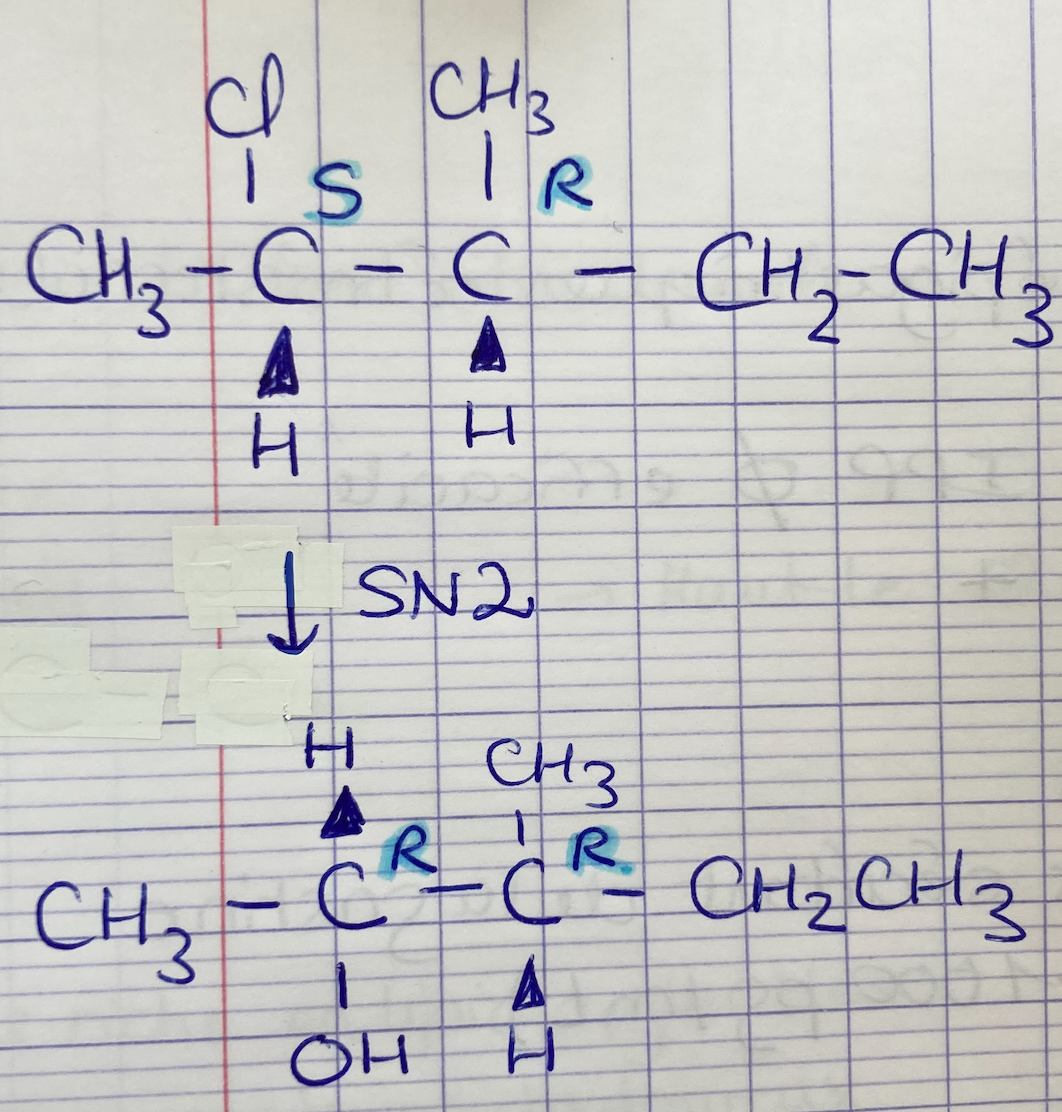 Cl CH3
S R
CH3 - C - C - CH2 - CH3
H H
SN2
H CH3
R R
CH3 - C - C - CH2 CH3
OH H